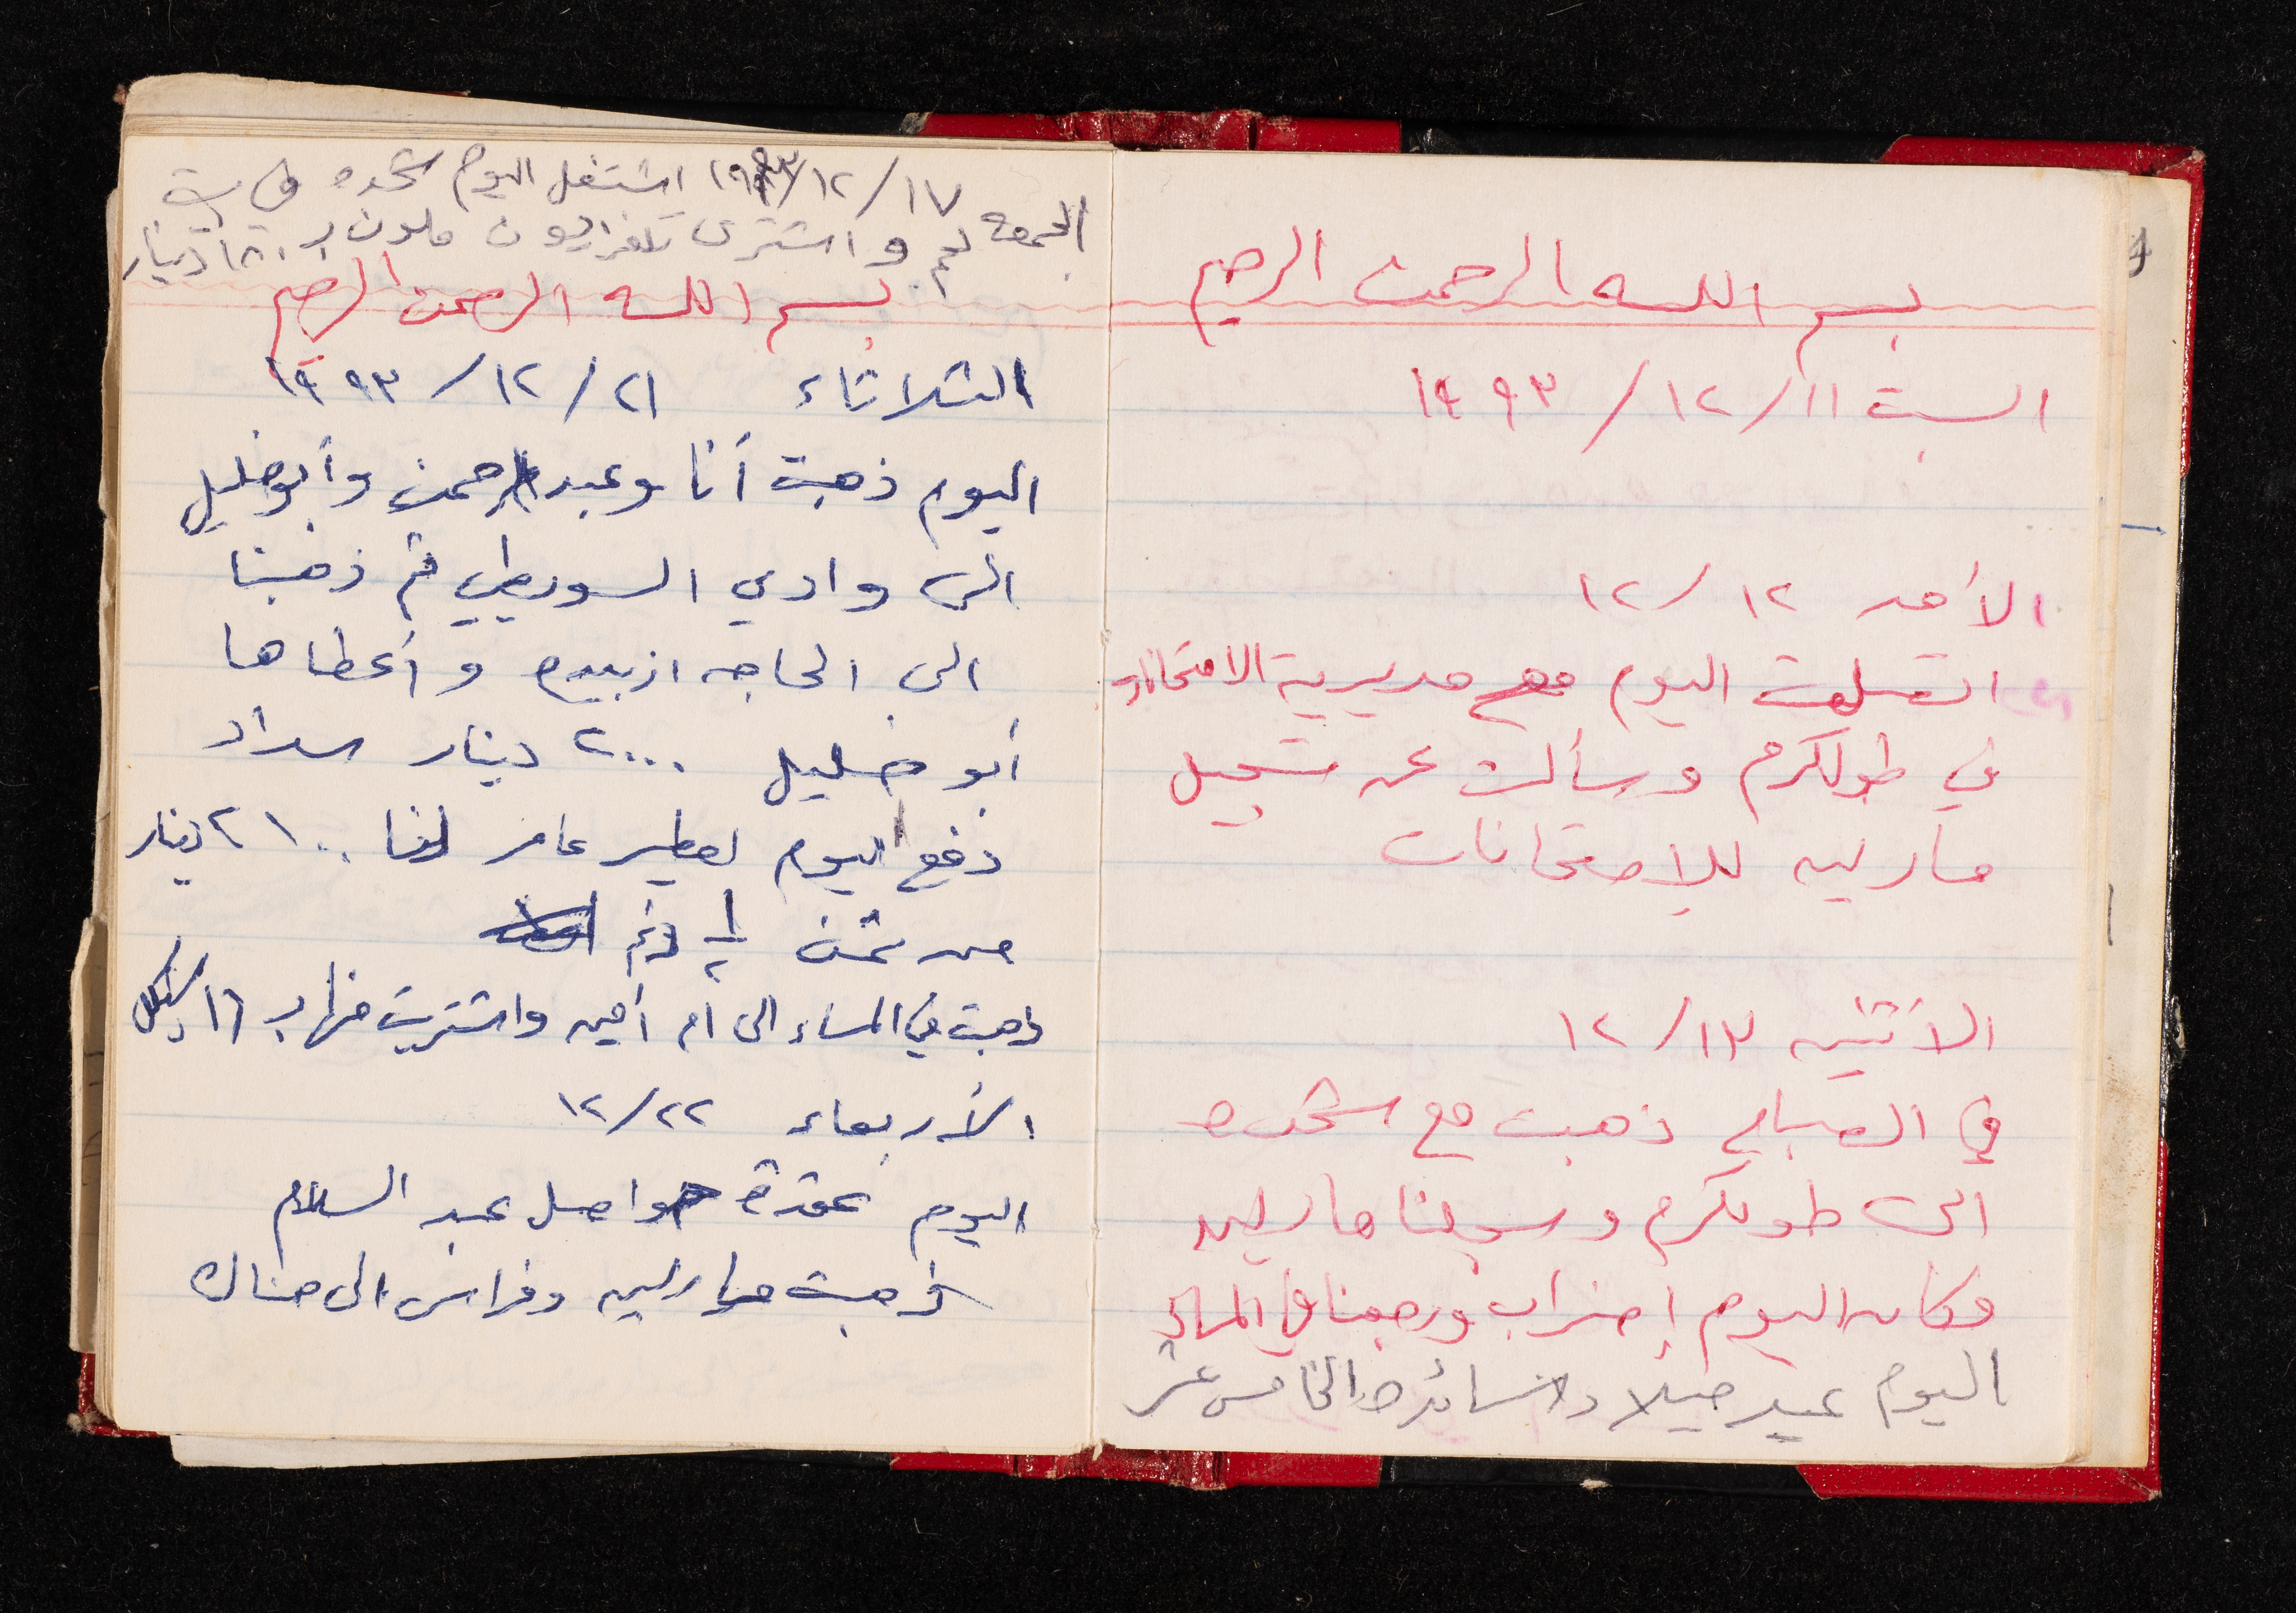 بسم الله الرحمن الرحيم
السبت ١١/ ١٢/ ١٩٩٣
الأحد ١٢/ ١٢
اتصلت اليوم مع مديرية الامتحانات
في طولكرم وسألت عن تسجيل
مارلين للامتحانات
الأثنين ١٣/ ١٢
في الصباح ذهبت مع شحده
الى طولكرم وسجلنا مارلين
وكان اليوم إضراب ورجعنا في المساء
اليوم عيد ميلاد سائده الخامس عشر
الجمعه ١٧/ ١٢/ ١٩٩٣ اشتغل اليوم شحده في بيت
لحم واشترى تلفزيون ملون ب ١٨٠ دينار
بسم الله الرحمن الرحيم
الثلاثاء ٢١/ ١٢/ ١٩٩٣
اليوم ذهبت أنا وعبد الرحمن وأبو خليل
الى وادي السويطي ثم ذهبنا
الى الحاجه ازبيده وأعطاها
أبو خليل ٢٠٠٠ دينار سداد
دفع اليوم لطير عامر لنا ٢١٠٠ دينار
من ثمن ١/٢ دنم
ذهبت في المساء الى ام أمين واشتريت منها ب ١٦ شيكل
الأربعاء ٢٢/ ١٢
اليوم عقدة مواصل عبد السلام
ذهبت مارلين وفراس الى هناك